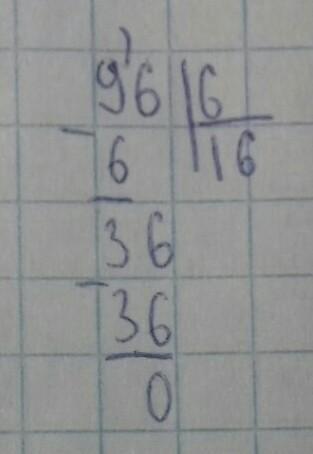 96 6
- 6 16
36
- 36
0